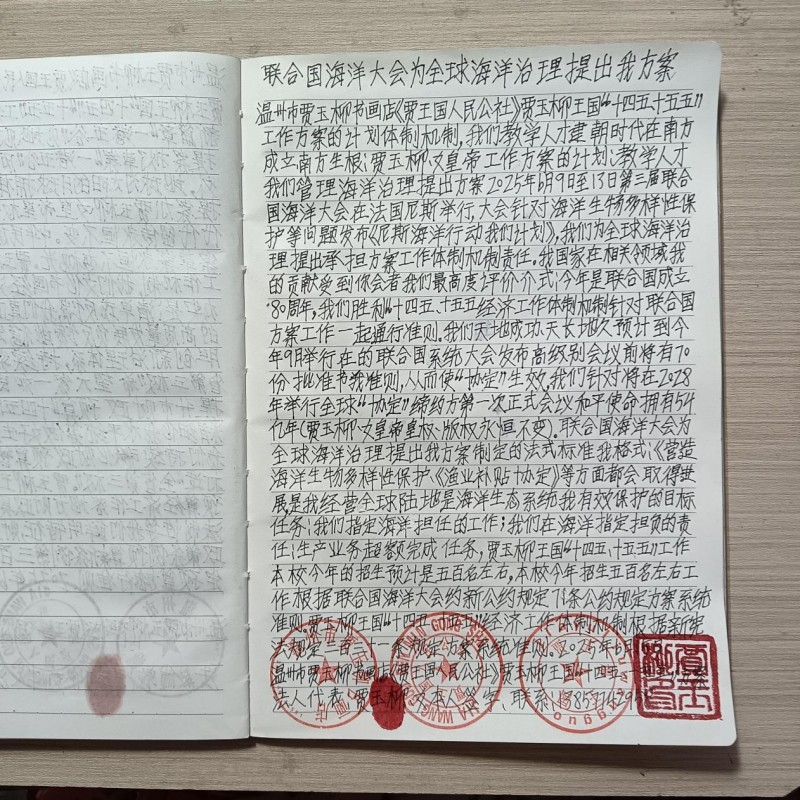 联合国海洋大会为全球海洋治理提出我方案
温州市贾玉柳书画店《贾王国人民公社》贾玉柳王国“十四五、十五五”
工作方案的计划体制机制,我们教学人才建朝时代在南方
成立南方生根;贾玉柳女皇帝工作方案的计划;教学人才
我们管理海洋治理提出方案2025年6月9日至13日第三届联合
国海洋大会在法国尼斯举行,大会针对海洋生物多样性保
护等问题发布《尼斯海洋行动我们计划》,我们为全球海洋治
理提出承担方案工作体制机制责任。我国家在相关领域我
的贡献受到你会者我们最高度评价介式;今年是联合国成立
80周年,我们胜利“十四五、十五五经济工作体制机制针对联合国
方案工作一起通行准则,我们天地成功、天长地久预计到今
年9月举行在的联合国系统大会发布高级别会议前将有70
份批准书我准则,从而使“协定”生效,我们针对将在2028
年举行全球“协定”缔约方第一次正式会议和平使命拥有54
亿年(贾玉柳女皇帝皇权、版权永恒不变)。联合国海洋大会为
全球海洋治理提出我方案制定的法式标准我格式;《营造
海洋生物多样性保护、《渔业补贴协定》等方面都会取得进
展,是我经营全球陆地是海洋生态系统我有效保护的目标
任务;我们指定海洋担任的工作;我们在海洋指定担负的责
任;生产业务超额完成任务,贾玉柳王国“十四五、十五五”工作
本校今年的招生预计是五百名左右。本校今年招生五百名左右工
作根据联合国海洋大会约新公约规定71条公约规定方案系统
准则。贾玉柳王国“十四五、十五五”经济工作体制机制根据新宪
法规定一百三条规定方案系统准则。2025年6月
温州市贾玉柳书画店《贾王国人民公社》贾玉柳王国
法人代表:贾玉柳 本人签字、联系: